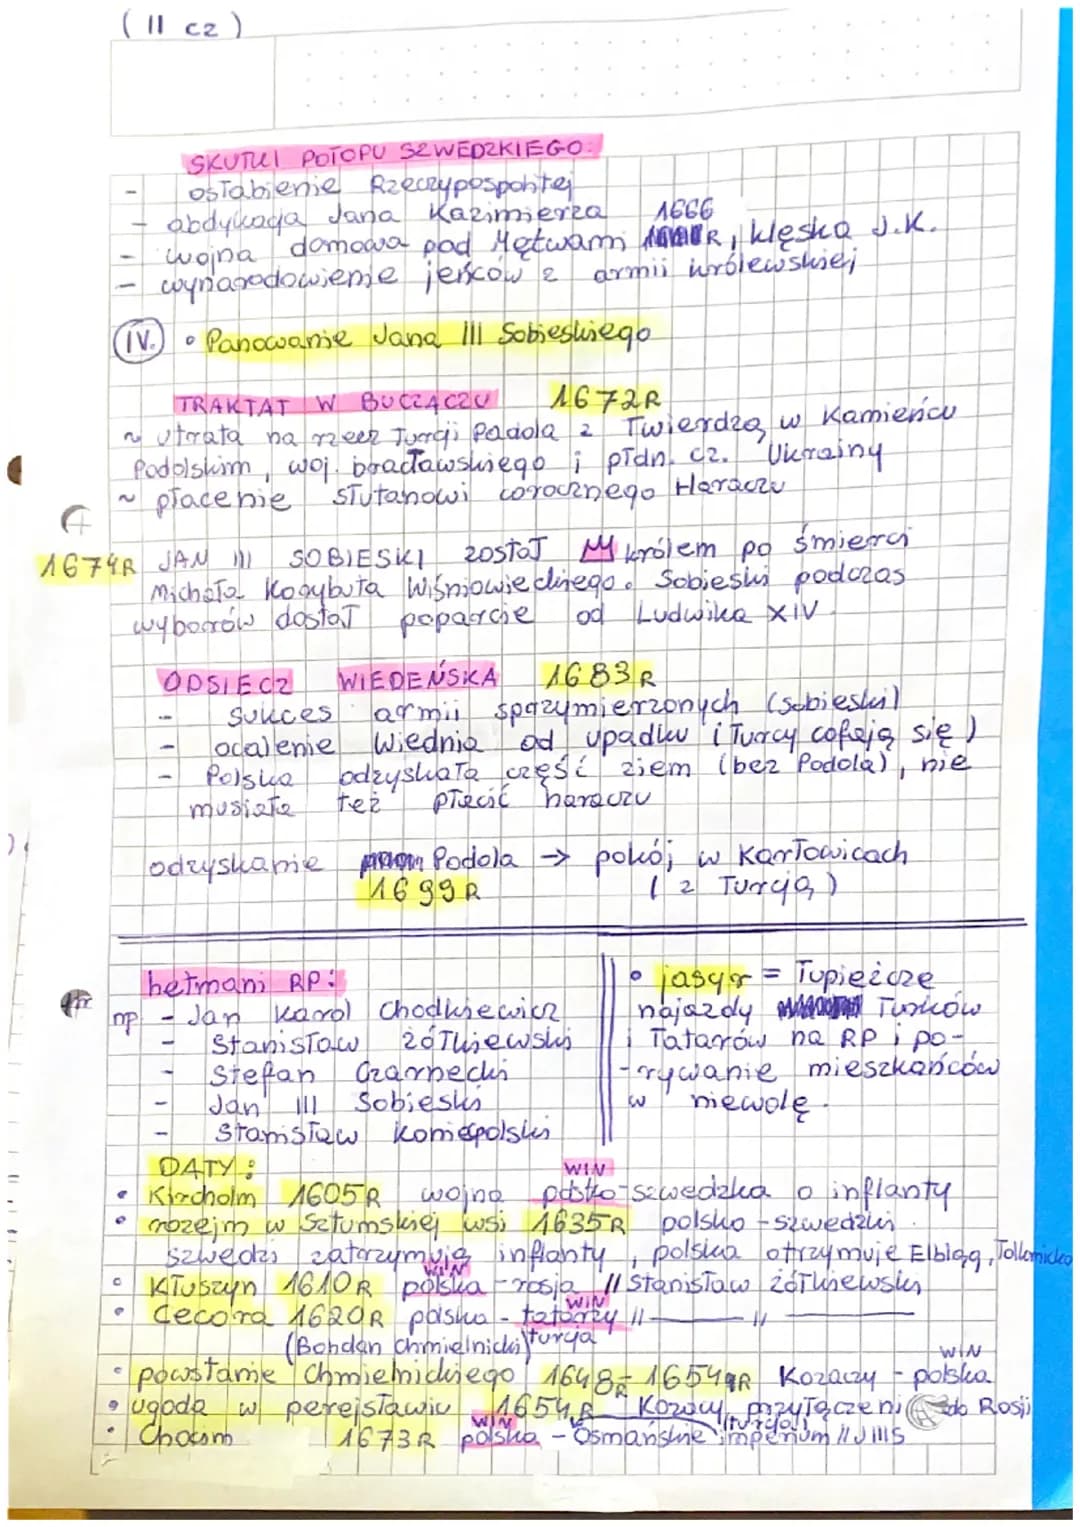 ( II cz )
SKUTKI POTOPU SZWEDZKIEGO:
- osłabienie Rzeczypospolitej
- abdykacja Jana Kazimierza
- wojna domowa pod Mętwami 1666 R, klęska J.K.
- wynagodowienie jeńców z armii królewskiej
IV. • Panowanie Jana III Sobieskiego
TRAKTAT W BUCZACZU 1672R
~ utrata na rzecz Turcji Padola z Twierdzą w Kamieńcu
Podolskim, woj. bracławskiego i płdn. cz. Ukrainy
~ płacenie słutanowi corocznego Haraczu
1674R JAN III SOBIESKI został królem po śmierci
Michała Korybuta Wiśniowieckiego. Sobieski podczas
wyborów dostał poparcie od Ludwika XIV.
ODSIECZ WIEDEŃSKA 1683R
- sukces armii sprzymierzonych (Sobieski)
- ocalenie Wiednia od upadku (i Turcy cofają się)
- Polska odzyskała część ziem (bez Podola), nie
musiała też płacić haraczu
odzyskanie Podola → pokój w Karłowicach
1699R ( z Turcją )
hetmani RP:
np - Jan Karol Chodkiewicz
- Stanisław Żółkiewski
- Stefan Czarnecki
- Jan III Sobieski
- Stanisław Koniecpolski
• jasyr = łupieżcze
najazdy Turków
i Tatarów na RP i po-
-rywanie mieszkańców
w niewolę.
DATY:
WIN
• Kircholm 1605R wojna polsko-szwedzka o inflanty
• rozejm w Sztumskiej wsi 1635R polsko-szwedzki.
szwedzi zatrzymują inflanty, polska otrzymuje Elbląg, Tolkmicko
WIN
• Kłuszyn 1610R polska-rosja // Stanisław żółkiewski
WIN
• Cecora 1620R polska - tatarzy // — // —
(Bohdan Chmielnicki) turcja
WIN
• powstanie Chmielnickiego 1648R-1654R Kozacy - polska
• ugoda w perejsławiu 1654R Kozacy przyłączeni do Rosji
WIN (turcja)
• Chocim 1673R polska - Osmańskie imperium // J III S